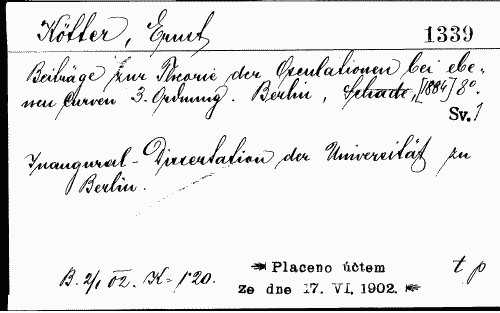 Kötter, Ernst
1339
Beiträge zur Theorie der Osculationen bei ebe-
nen Curven 3. Ordnung. Berlin, Schade, [1884] 8°.
Sv. 1
Inaugural-Dissertation der Universität zu
Berlin.
B. 2/1 02. K = 1˙20.
Placeno účtem
ze dne 17. VI. 1902.
t p